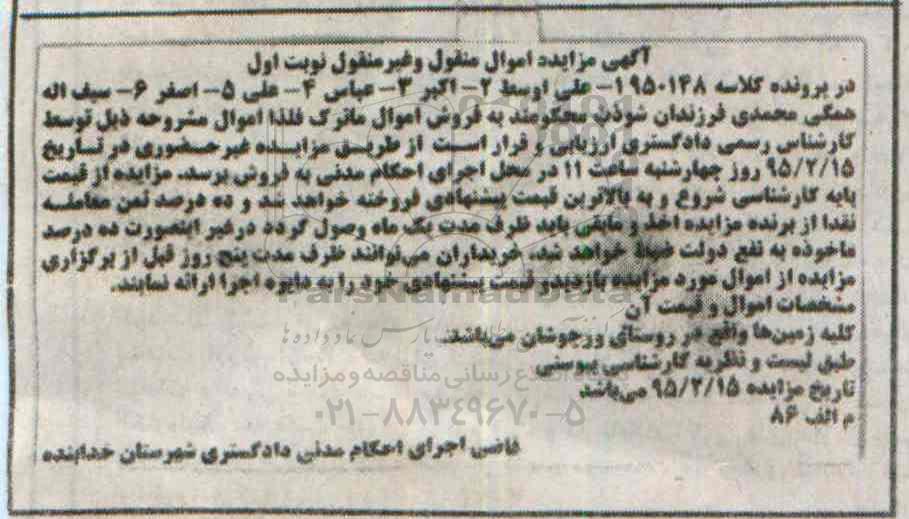 آگهی مزایده اموال منقول وغیرمنقول نوبت اول
در پرونده کلاسه ۹۵۰۱۴۸ ۱- علی اوسط ۲- اکبر ۳- عباس ۴- علی ۵- اصغر ۶- سیف اله
همگی محمدی فرزندان شوذب محکومند به فروش اموال ماترک فلذا اموال مشروحه ذیل توسط
کارشناس رسمی دادگستری ارزیابی و قرار است از طریق مزایده غیرحضوری در تاریخ
۹۵/۲/۱۵ روز چهارشنبه ساعت ۱۱ در محل اجرای احکام مدنی به فروش برسد. مزایده از قیمت
پایه کارشناسی شروع و به بالاترین قیمت پیشنهادی فروخته خواهد شد و ده درصد ثمن معامله
نقدا از برنده مزایده اخذ و مابقی باید ظرف مدت یک ماه وصول گردد درغیر اینصورت ده درصد
ماخوذه به نفع دولت ضبط خواهد شد. خریداران می‌توانند ظرف مدت پنج روز قبل از برگزاری
مزایده از اموال مورد مزایده بازدیدو قیمت پیشنهادی خود را به دایره اجرا ارائه نمایند.
ParsNamadData
مشخصات اموال و قیمت آن
کلیه زمین‌ها واقع در روستای ورجوشان می‌باشد.
طبق لیست و نظریه کارشناسی پیوستی
تاریخ مزایده ۹۵/۲/۱۵ می‌باشد
۰۲۱-۸۸۳۴۹۶۷۰-۵
م الف ۸۶
قاضی اجرای احکام مدنی دادگستری شهرستان خدابنده